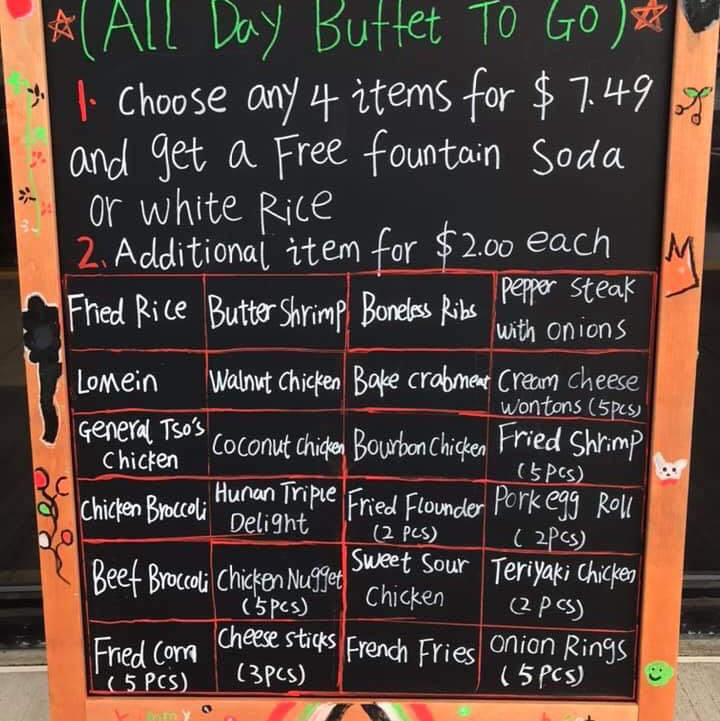 (All Day Buffet To Go)
1. Choose any 4 items for $7.49
and get a Free fountain Soda
or white Rice
2. Additional item for $2.00 each
Fried Rice
Butter Shrimp
Boneless Ribs
Pepper Steak
with onions
Lomein
Walnut Chicken
Bake crabmeat
Cream cheese
wontons (5pcs)
General Tso's
Chicken
Coconut chicken
Bourbon Chicken
Fried Shrimp
(5pcs)
Chicken Broccoli
Hunan Triple
Delight
Fried Flounder
(2 pcs)
Pork egg Roll
(2pcs)
Beef Broccoli
Chicken Nugget
(5pcs)
Sweet Sour
Chicken
Teriyaki Chicken
(2 pcs)
Fried Corn
(5 pcs)
Cheese sticks
(3pcs)
French Fries
onion Rings
(5pcs)